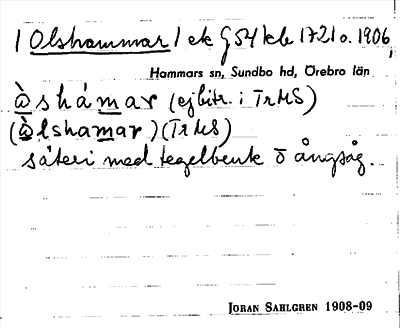 / Olshammar / ek G54 kb 1721 o. 1906,
Hammars sn, Sundbo hd, Örebro län
àshámar (ej bitr. i TrMS)
(àlshamar) (TrMS)
säteri med tegelbruk o ångsåg.
JORAN SAHLGREN 1908-09